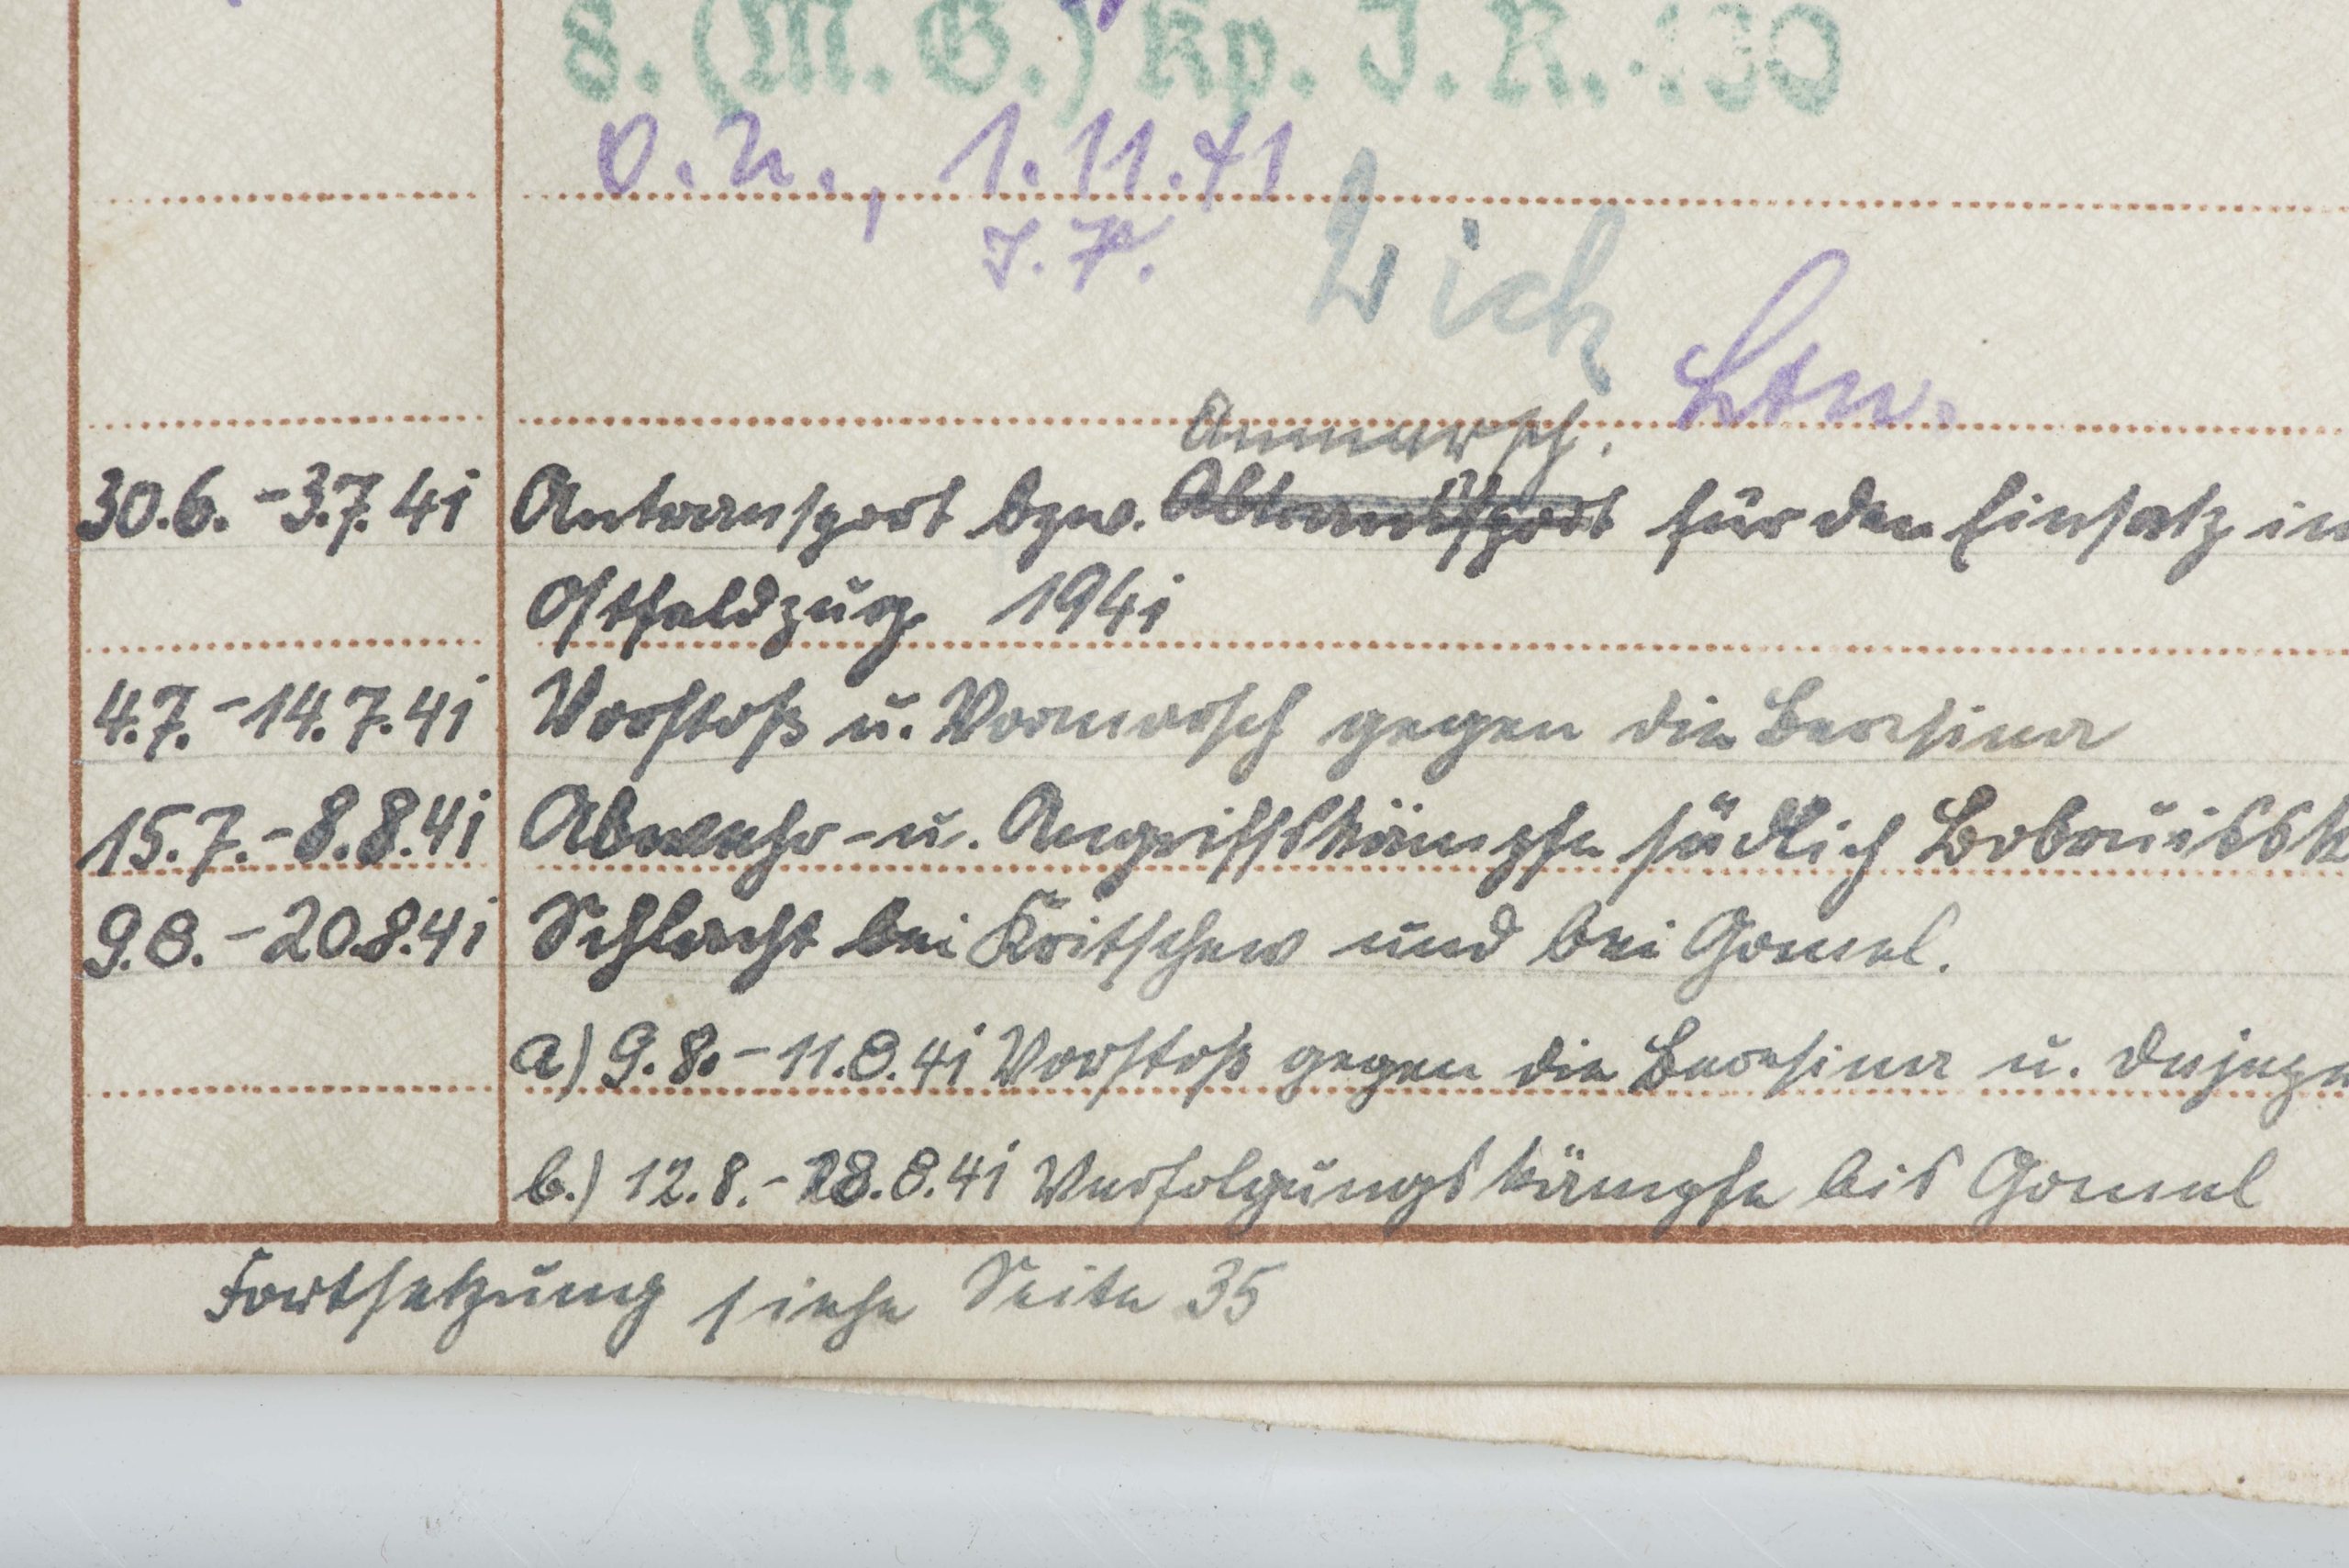 8. (M. G.) Kp. J. R. 130
O. U., 1. 11. 41
J. V.
Ltn.
Anmarsch.
30.6. - 3.7. 41 Antransport bzw. Abtransport für den Einsatz im
Ostfeldzug 1941
4.7. - 14.7. 41 Vorstoß u. Vormarsch gegen die Beresina
15.7. - 8.8. 41 Abwehr- u. Angriffskämpfe südlich Bobruissk
9.8. - 20.8. 41 Schlacht bei Kritschew und bei Gomel.
a) 9.8. - 11.8. 41 Vorstoß gegen die Beresina u. Dnjepr
b.) 12.8. - 18.8. 41 Verfolgungskämpfe bis Gomel
Fortsetzung siehe Seite 35